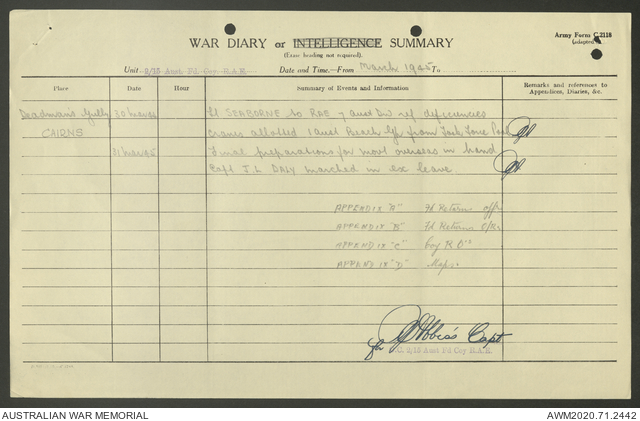 Army Form C.2118
(adapted)
WAR DIARY or INTELLIGENCE SUMMARY
(Erase heading not required).
Unit 2/15 Aust Fd Coy R.A.E. Date and Time—From March 1945 To
Place Date Hour Summary of Events and Information Remarks and references to Appendices, Diaries, &c.
Deadman's Gully 30 Mar 45 Lt SEABORNE to RAE 7 Aust Div ref deficiencies
CAIRNS Cranes allotted 1 Aust Beach Gp from Task Force Pool
31 Mar 45 Final preparations for move overseas in hand
Capt J.L. DALY marched in ex leave
APPENDIX "A" Fd Return offr
APPENDIX "B" Fd Return O/Rs
APPENDIX "C" Coy R O's
APPENDIX "D" Maps
Capt
O.C. 2/15 Aust Fd Coy R.A.E.
AUSTRALIAN WAR MEMORIAL AWM2020.71.2442